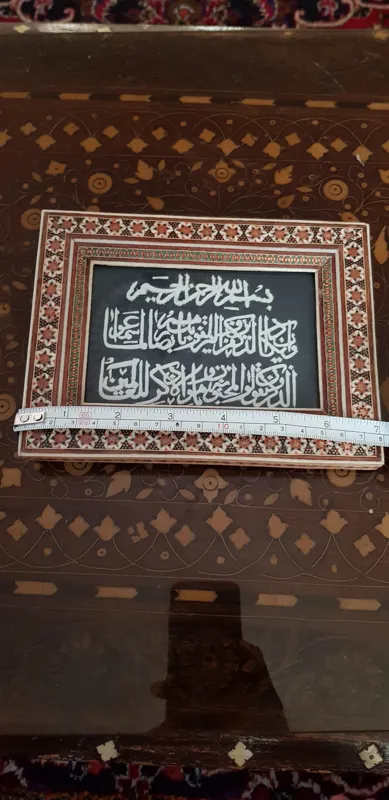 بسم الله الرحمن الرحیم
وان یکاد الذین کفروا لیزلقونک بابصارهم لما سمعوا
الذکر ویقولون انه لمجنون وما هو الا ذکر للعالمین
1 2 3 4 5 6 7
10